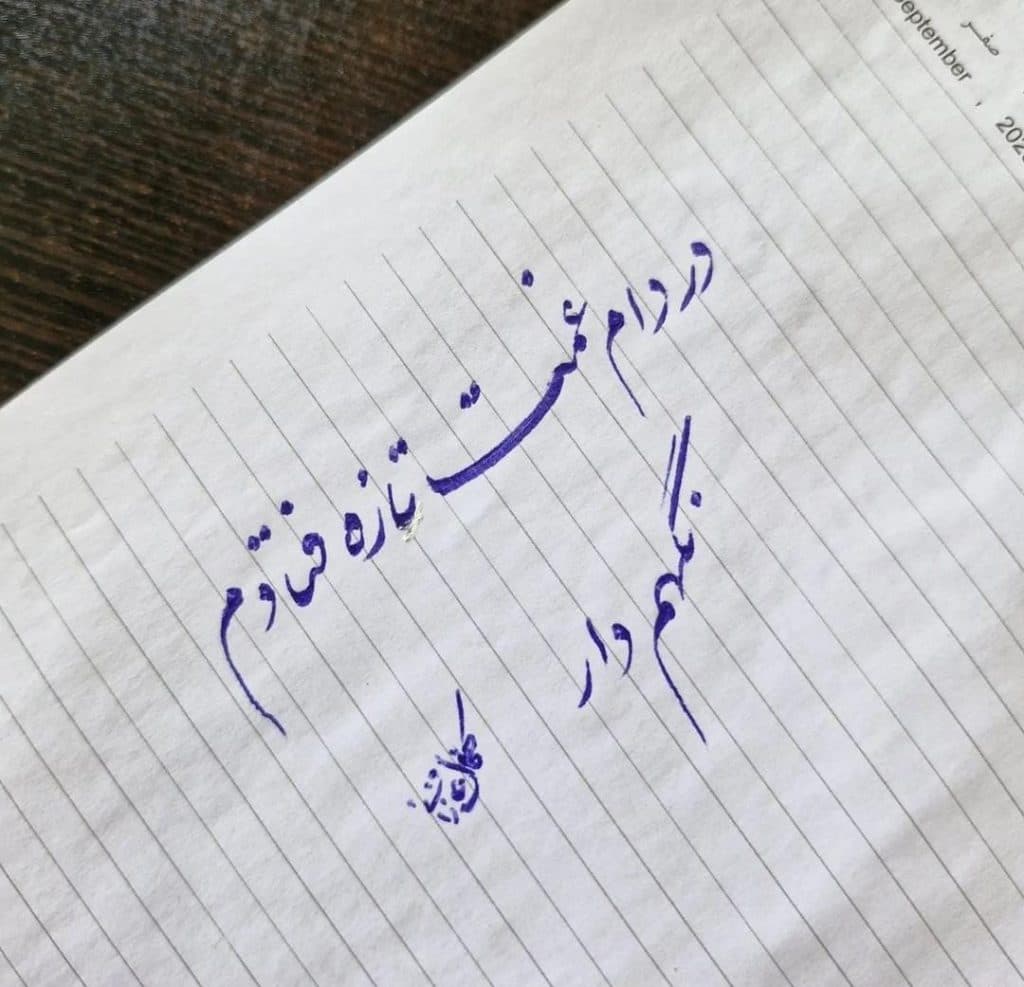 صفر
September , 202
در دام غمت تازه فتادم
نگهم دار